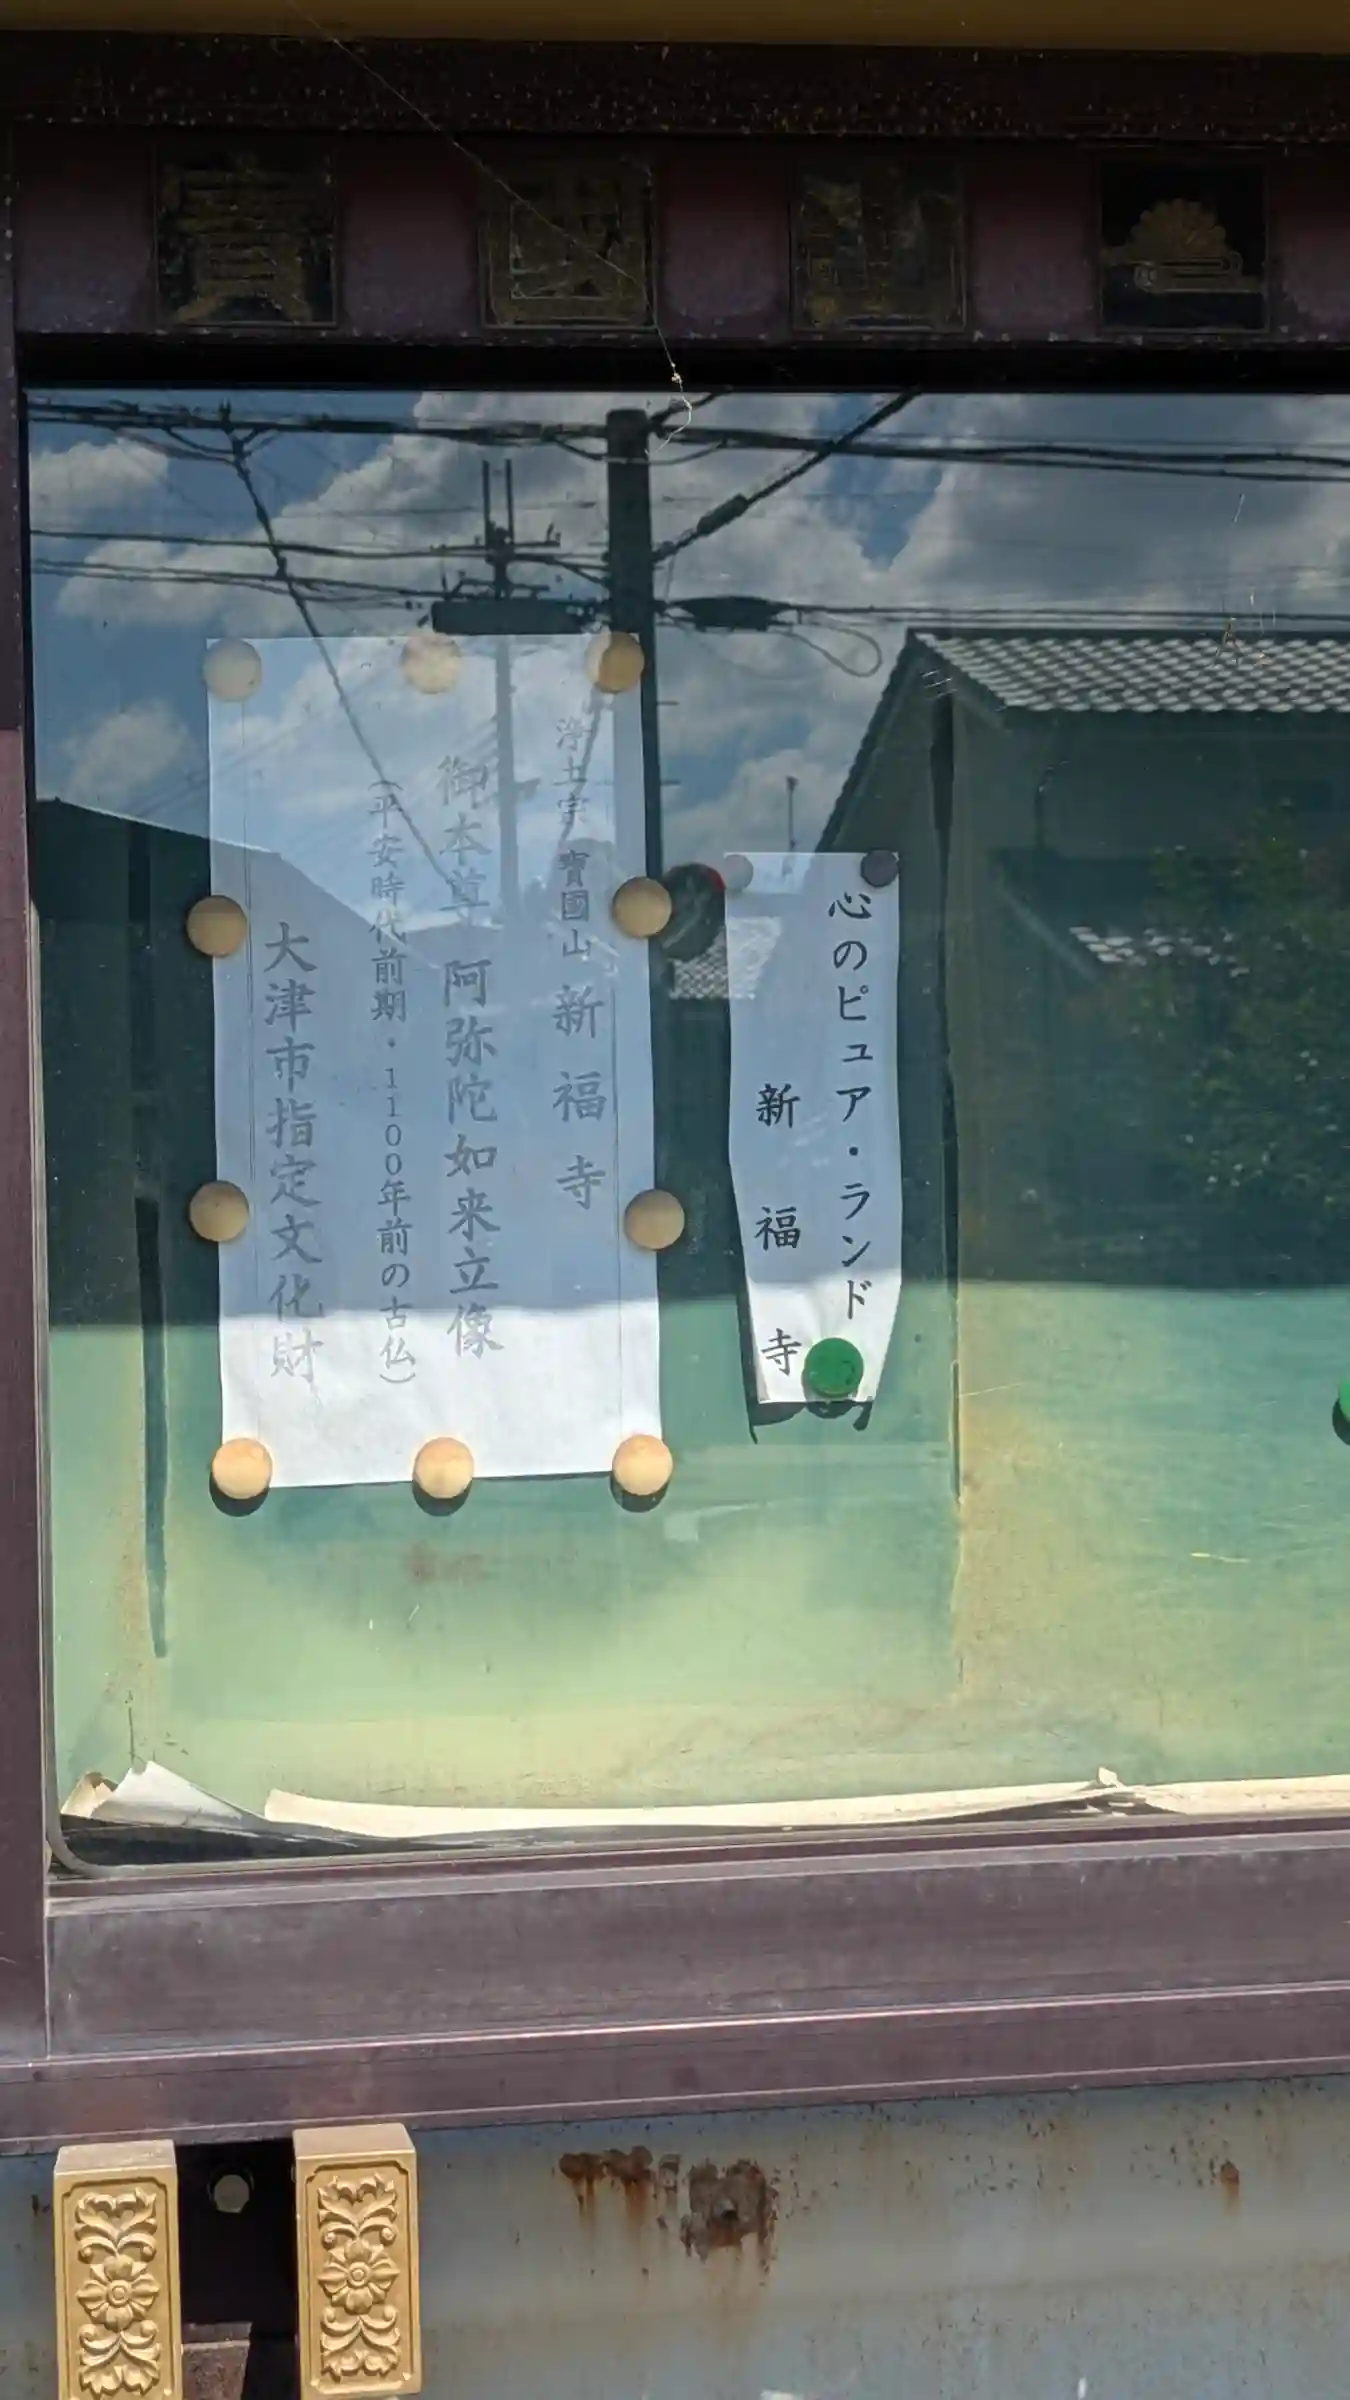 心のピュア・ランド
新福寺
浄土宗 寳國山 新福寺
御本尊 阿弥陀如来立像
(平安時代前期・1100年前の古仏)
大津市指定文化財